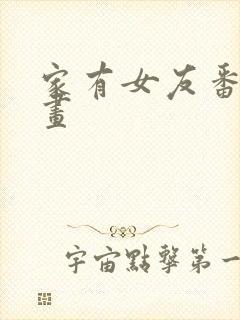 家有女友番
畫
宇宙點擊第一